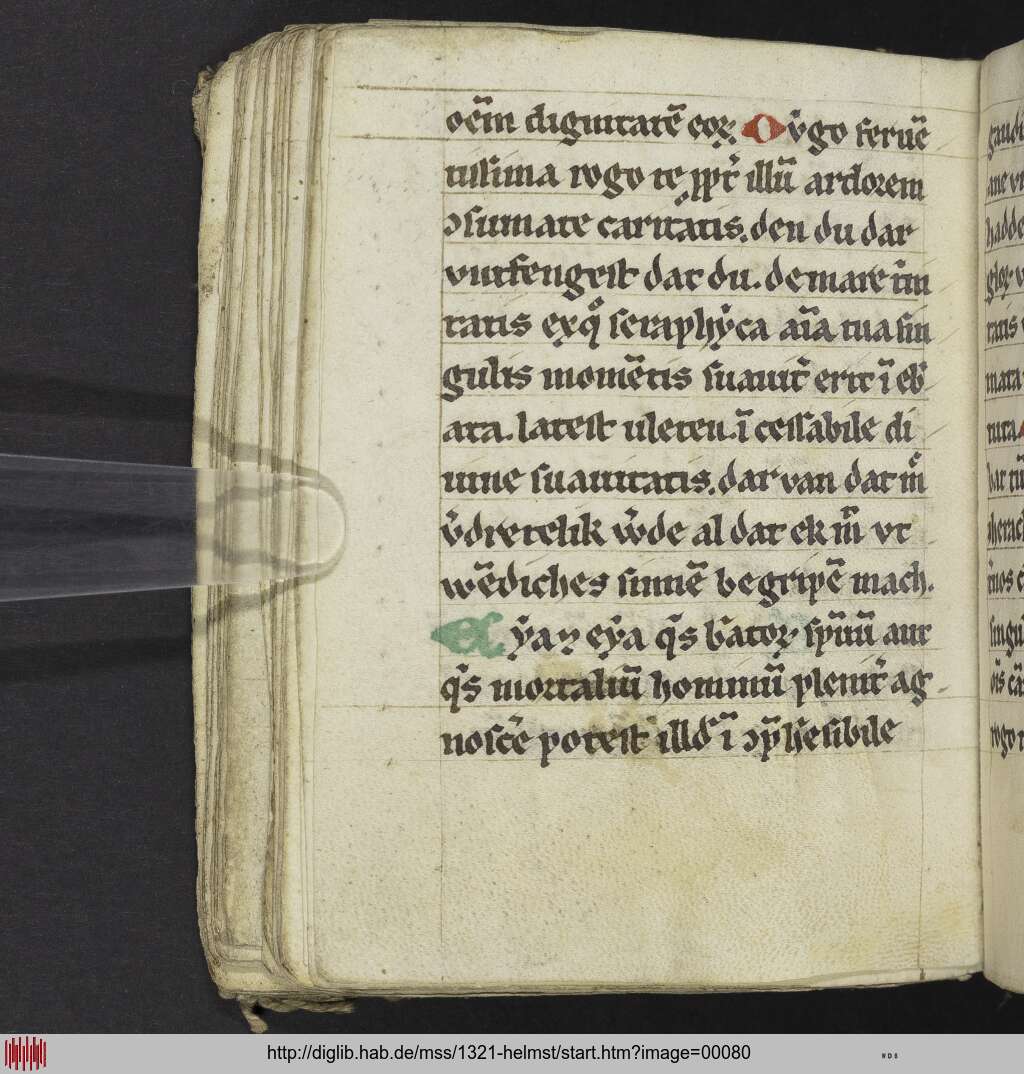 oēm dignitatē eoꝝ O v̇go feruē
tissima rogo te ꝓpt̉ illū ardorem
ↄsumate caritatis. den du dar
vntfengest dar du. de mare t̉m
tatis ex qͦ seraphẏca aīa tua sin
gulis momētis suauit̉ erit ī eb̉
ata. latest uleten. ī cessabile di
uine suauitatis. dar van dat mͥ
v̉dretelik w̉de al dat ek m̄ vt
wēdiches sinnē begripē mach.
Eẏa ⁊ eẏa q̄s b̉atoꝝ spūū aut
q̄s mortaliū hominū plenit̉ ag
nosc̉e potest illd̉ ī ↄp̄h̉esibile
http://diglib.hab.de/mss/1321-helmst/start.htm?image=00080